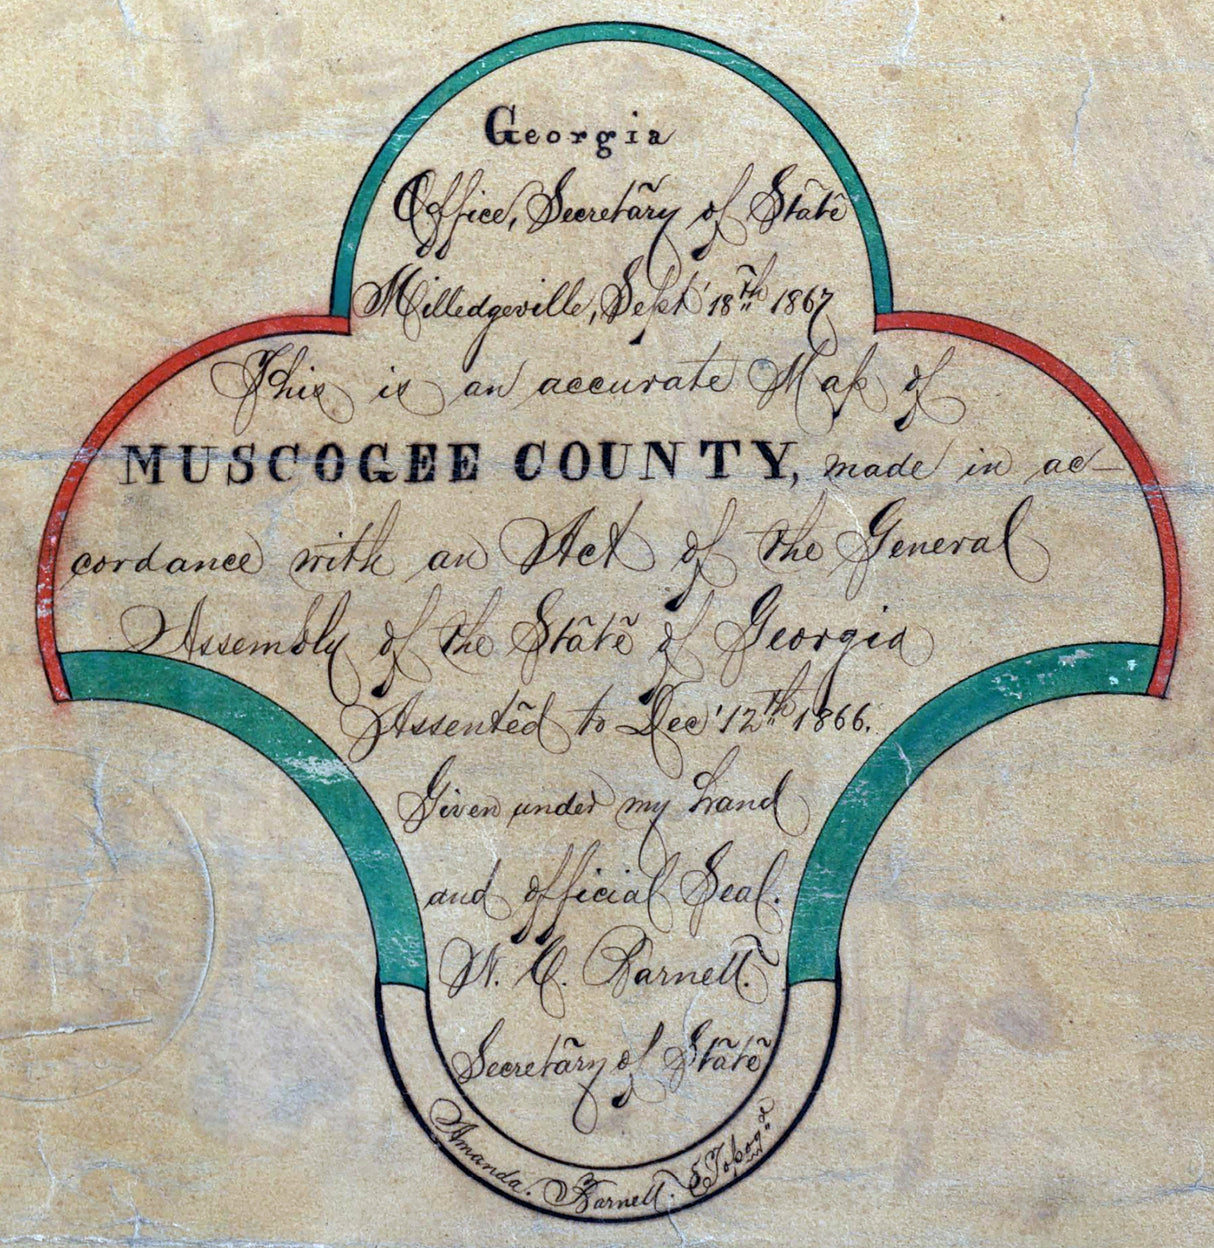 Georgia
Office, Secretary of State
Milledgeville, Sept' 18th 1867
This is an accurate Map of
MUSCOGEE COUNTY, made in ac-
cordance with an Act of the General
Assembly of the State of Georgia
Assented to Dec' 12th 1866.
Given under my hand
and official Seal.
N. C. Barnett.
Secretary of State
Amanda. Barnett. Topog'r